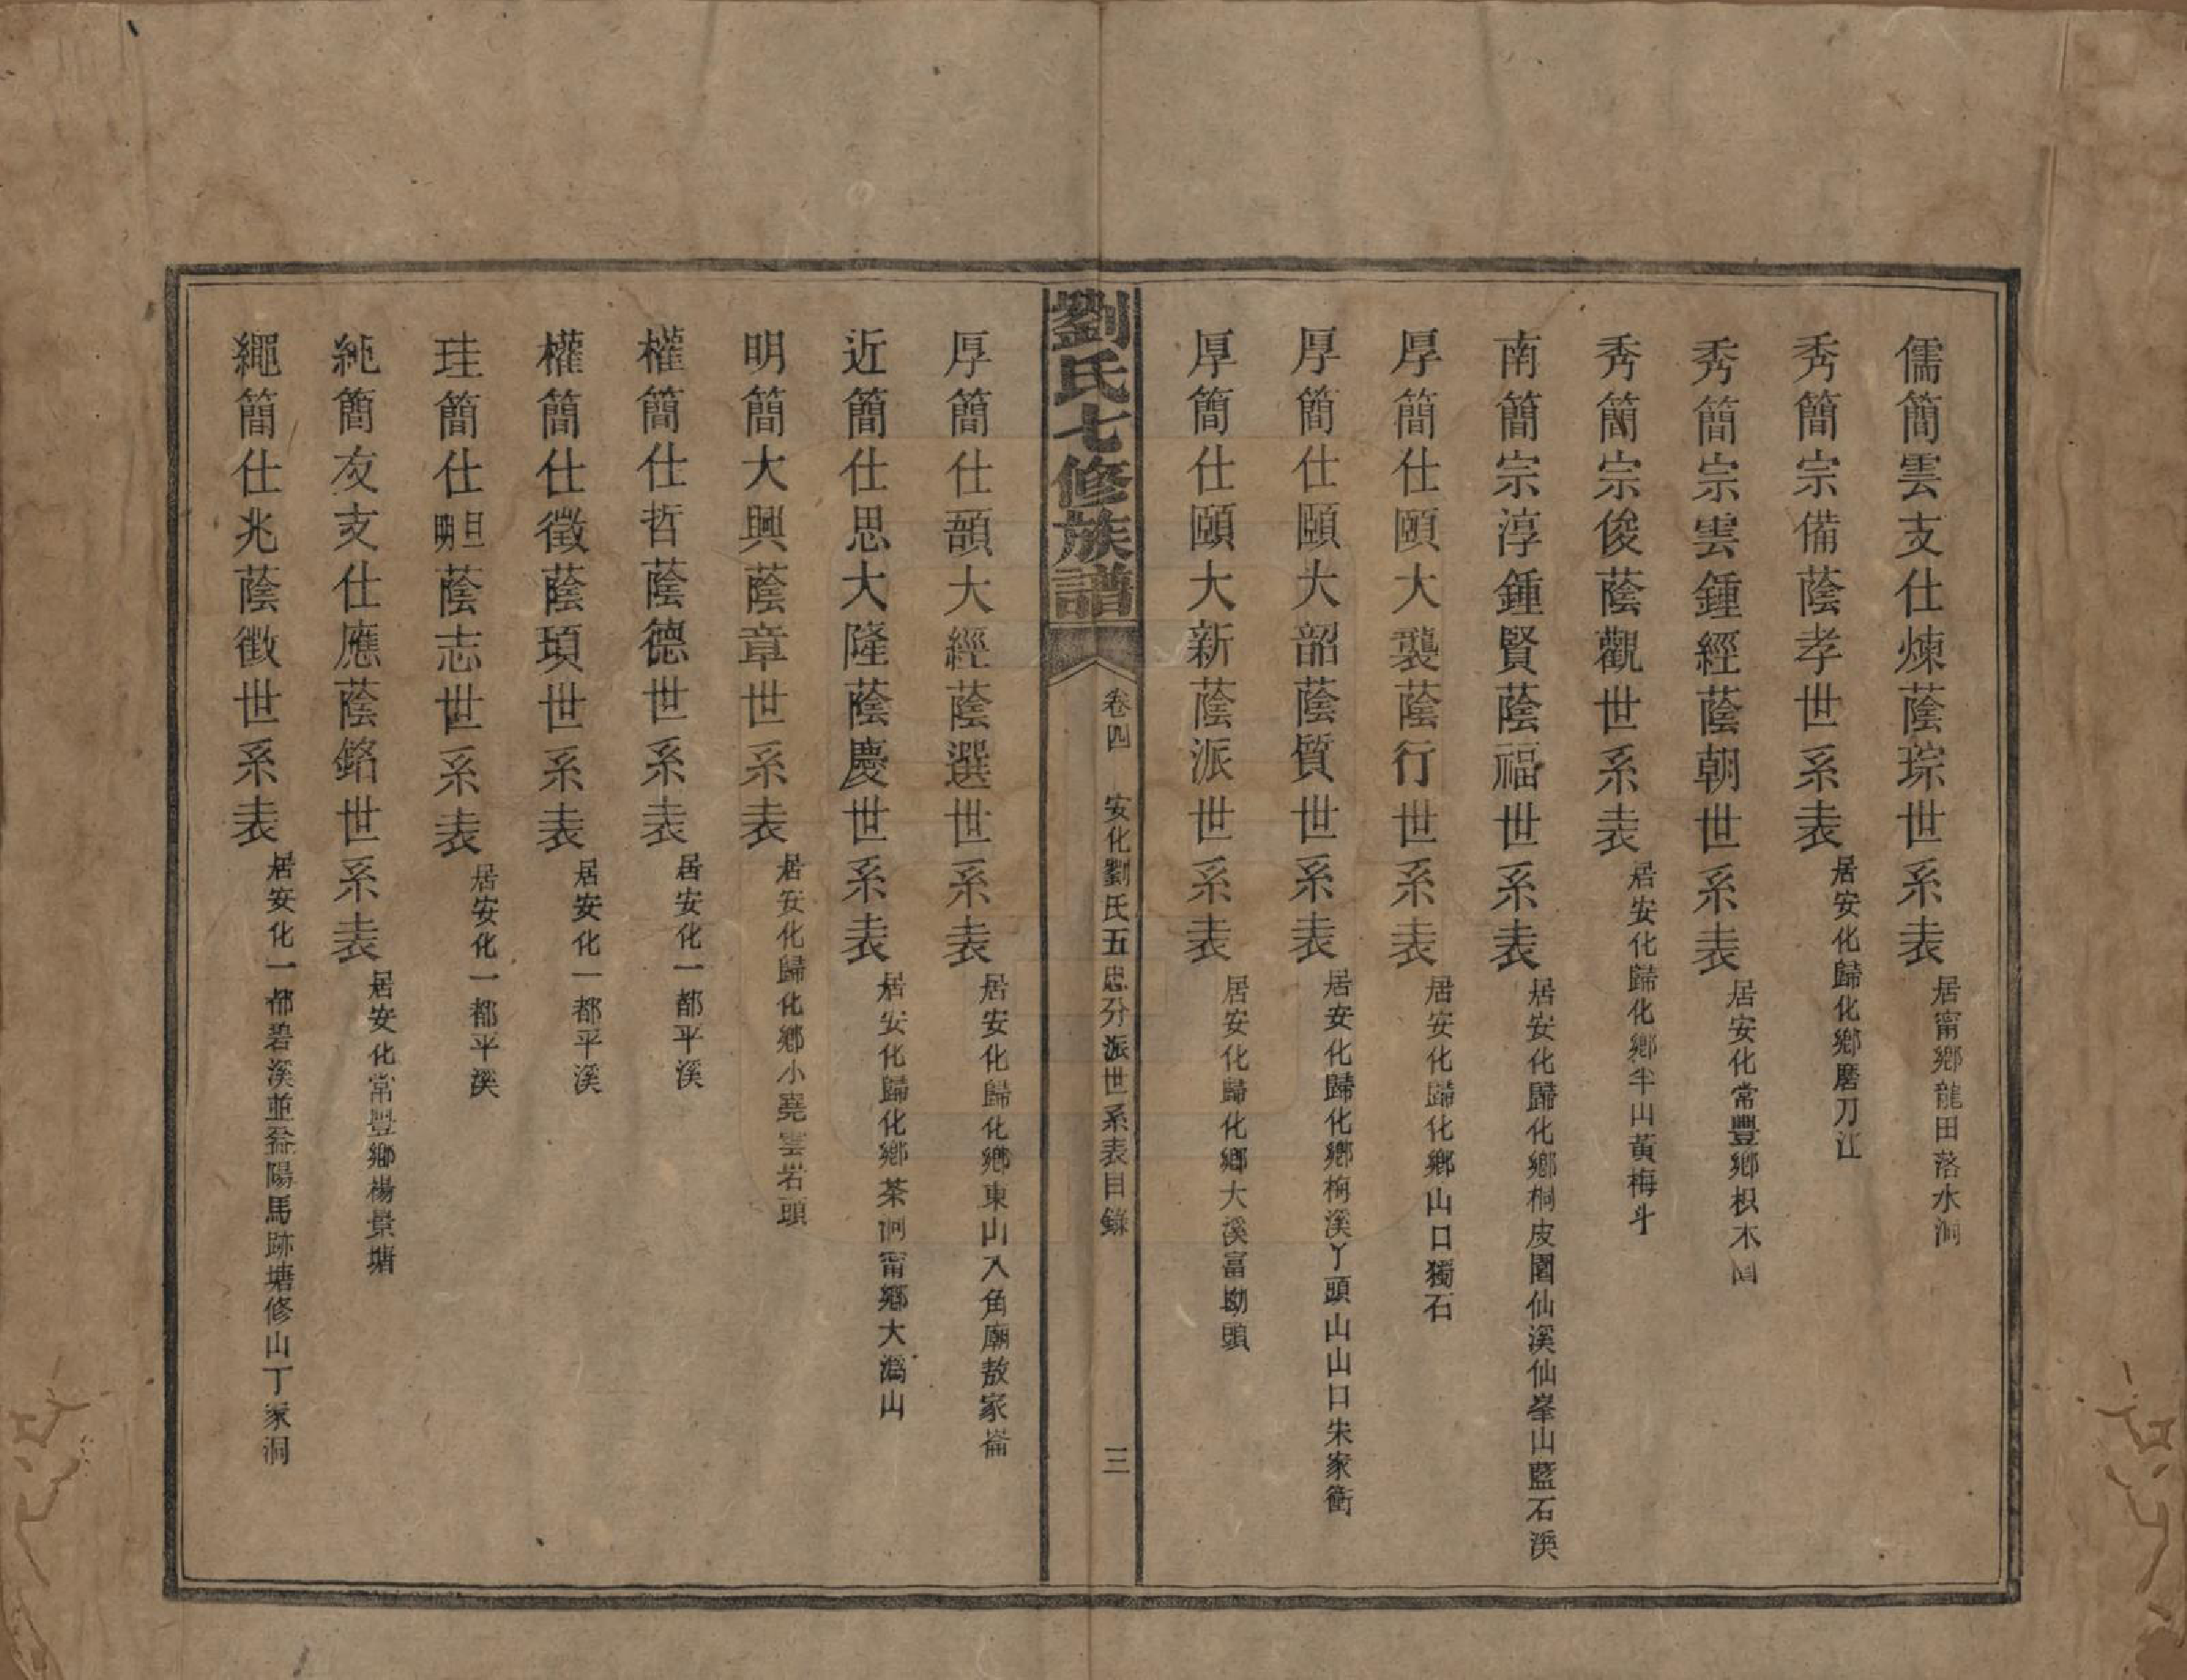 儒簡雲支仕煉蔭琮世系表 居甯鄉龍田落水洞
秀簡宗備蔭孝世系表 居安化歸化鄉磨刀江
秀簡宗雲鍾經蔭朝世系表 居安化常豐鄉枳木園
秀簡宗俊蔭觀世系表 居安化歸化鄉半山黃梅斗
南簡宗淳鍾賢蔭福世系表 居安化歸化鄉桐皮園仙溪仙峯山藍石溪
厚簡仕頤大襲蔭行世系表 居安化歸化鄉山口獨石
厚簡仕頤大韶蔭質世系表 居安化歸化鄉梅溪丫頭山山口朱家衝
厚簡仕頤大新蔭派世系表 居安化歸化鄉大溪富坳頭
劉氏七修族譜 卷四 安化劉氏五忠分派世系表目錄 三
厚簡仕頡大經蔭選世系表 居安化歸化鄉東山入角廟敖家崙
近簡仕思大隆蔭慶世系表 居安化歸化鄉茶洞甯鄉大溈山
明簡大興蔭章世系表 居安化歸化鄉小堯雲岩頭
權簡仕哲蔭德世系表 居安化一都平溪
權簡仕徵蔭頊世系表 居安化一都平溪
珪簡仕旦明蔭志世系表 居安化一都平溪
純簡友支仕應蔭銘世系表 居安化常豐鄉楊景塘
繩簡仕兆蔭徵世系表 居安化一都碧溪並益陽馬跡塘修山丁家洞